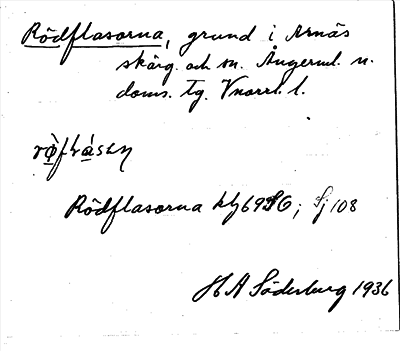 Rödflasorna, grund i Arnäs
skärg. och sn. Ångerml. n.
doms. tg. Vnorrl. l.
Rödflasorna klj 69 SO; Sj 108
H A Söderberg 1936